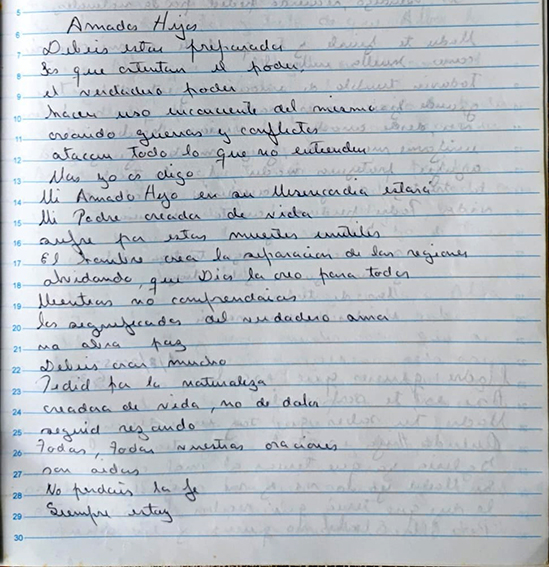 Amados Hijos
Debeis estar preparados
Los que ostentan el poder,
el verdadero poder
hacen uso inconciente del mismo
creando guerras y conflictos
atacan todo lo que no entienden
Mas yo os digo
Mi Amado Hijo en su Misericordia estara
Mi Padre creador de vida
sufre por estas muertes inutiles
El hombre crea la separacion de las regiones
olvidando, que Dios la creo para todos
Mientras no comprendais
los significados del verdadero amor
no abra paz
Debeis orar mucho
Pedid por la naturaleza
creadora de vida, no de dolor
seguid rezando
Todas, todas vuestras oraciones
son oidas
No perdais la fe
Siempre estoy
5
6
7
8
9
10
11
12
13
14
15
16
17
18
19
20
21
22
23
24
25
26
27
28
29
30